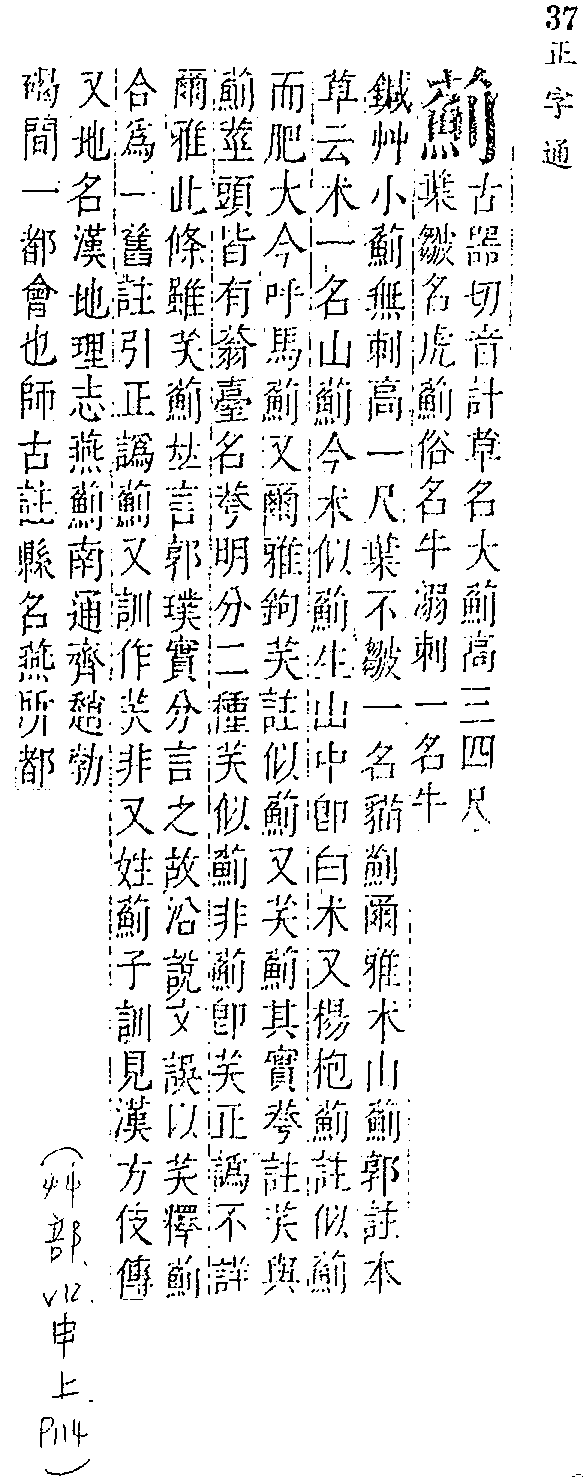 37 正字通
薊 古器切音計草名大薊高三四尺
葉皺名虎薊俗名牛溺刺一名牛
鍼艸小薊無刺高一尺葉不皺一名貓薊爾雅朮山薊郭註本
草云朮一名山薊今朮似薊生山中卽白朮又楊抱薊註似薊
而肥大今呼馬薊又爾雅鉤芺註似薊又芺薊其實荂註芺與
薊莖頭皆有蓊臺名荂明分二種芺似薊非薊卽芺正譌不詳
爾雅此條雖芺薊竝言郭璞實分言之故沿說文誤以芺釋薊
合爲一舊註引正譌薊又訓作芺非又姓薊子訓見漢方伎傳
又地名漢地理志燕薊南通齊趙勃
碣間一都會也師古註縣名燕所都
(艸部. V12. 申上. P114)